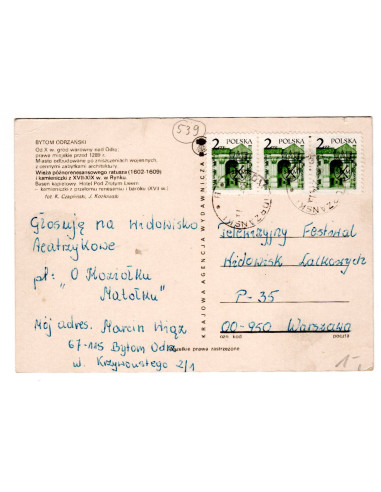 539
BYTOM ODRZAŃSKI
Od X w. gród warowny nad Odrą;
prawa miejskie przed 1289 r.
Miasto odbudowane po zniszczeniach wojennych,
z cennymi zabytkami architektury.
Wieża późnorenesansowego ratusza (1602-1609)
i kamieniczki z XVII-XIX w. w Rynku
Basen kąpielowy. Hotel Pod Złotym Lwem
- kamieniczka z przełomu renesansu i baroku (XVII w.)
fot. K. J.
2 POLSKA
2 POLSKA
2 POLSKA
Głosuję na widowisko
teatrzykowe
pt: "O Koziołku
Matołku"
Mój adres. Marcin
67-115 Bytom Odrz.
w. Krzywoustego 2/1
KRAJOWA AGENCJA WYDAWNICZA
Telewizyjny Festiwal
Widowisk Lalkowych
P-35
00-950 Warszawa
ozn. kod poczta
Wszelkie prawa zastrzeżone
1-